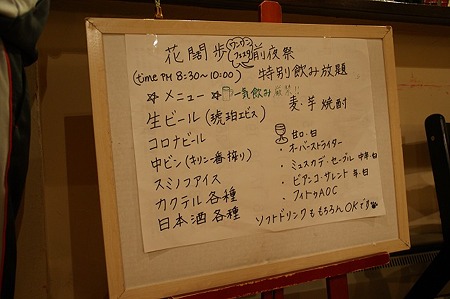 花闊歩ワンワンフェスタ前夜祭
(time PM 8:30～10:00) 特別飲み放題
☆メニュー☆ 一気飲み厳禁!!
生ビール(琥珀エビス)
コロナビール
中ビン(キリン一番搾り)
スミノフアイス
カクテル各種
日本酒各種
麦・芋焼酎
甘口・白
・オーバーストライダー
・ミュスカデ・セーブル 中辛・白
・ビアンコ・サレント 辛・白
・フィトゥAOC
ソフトドリンクももちろんOKです